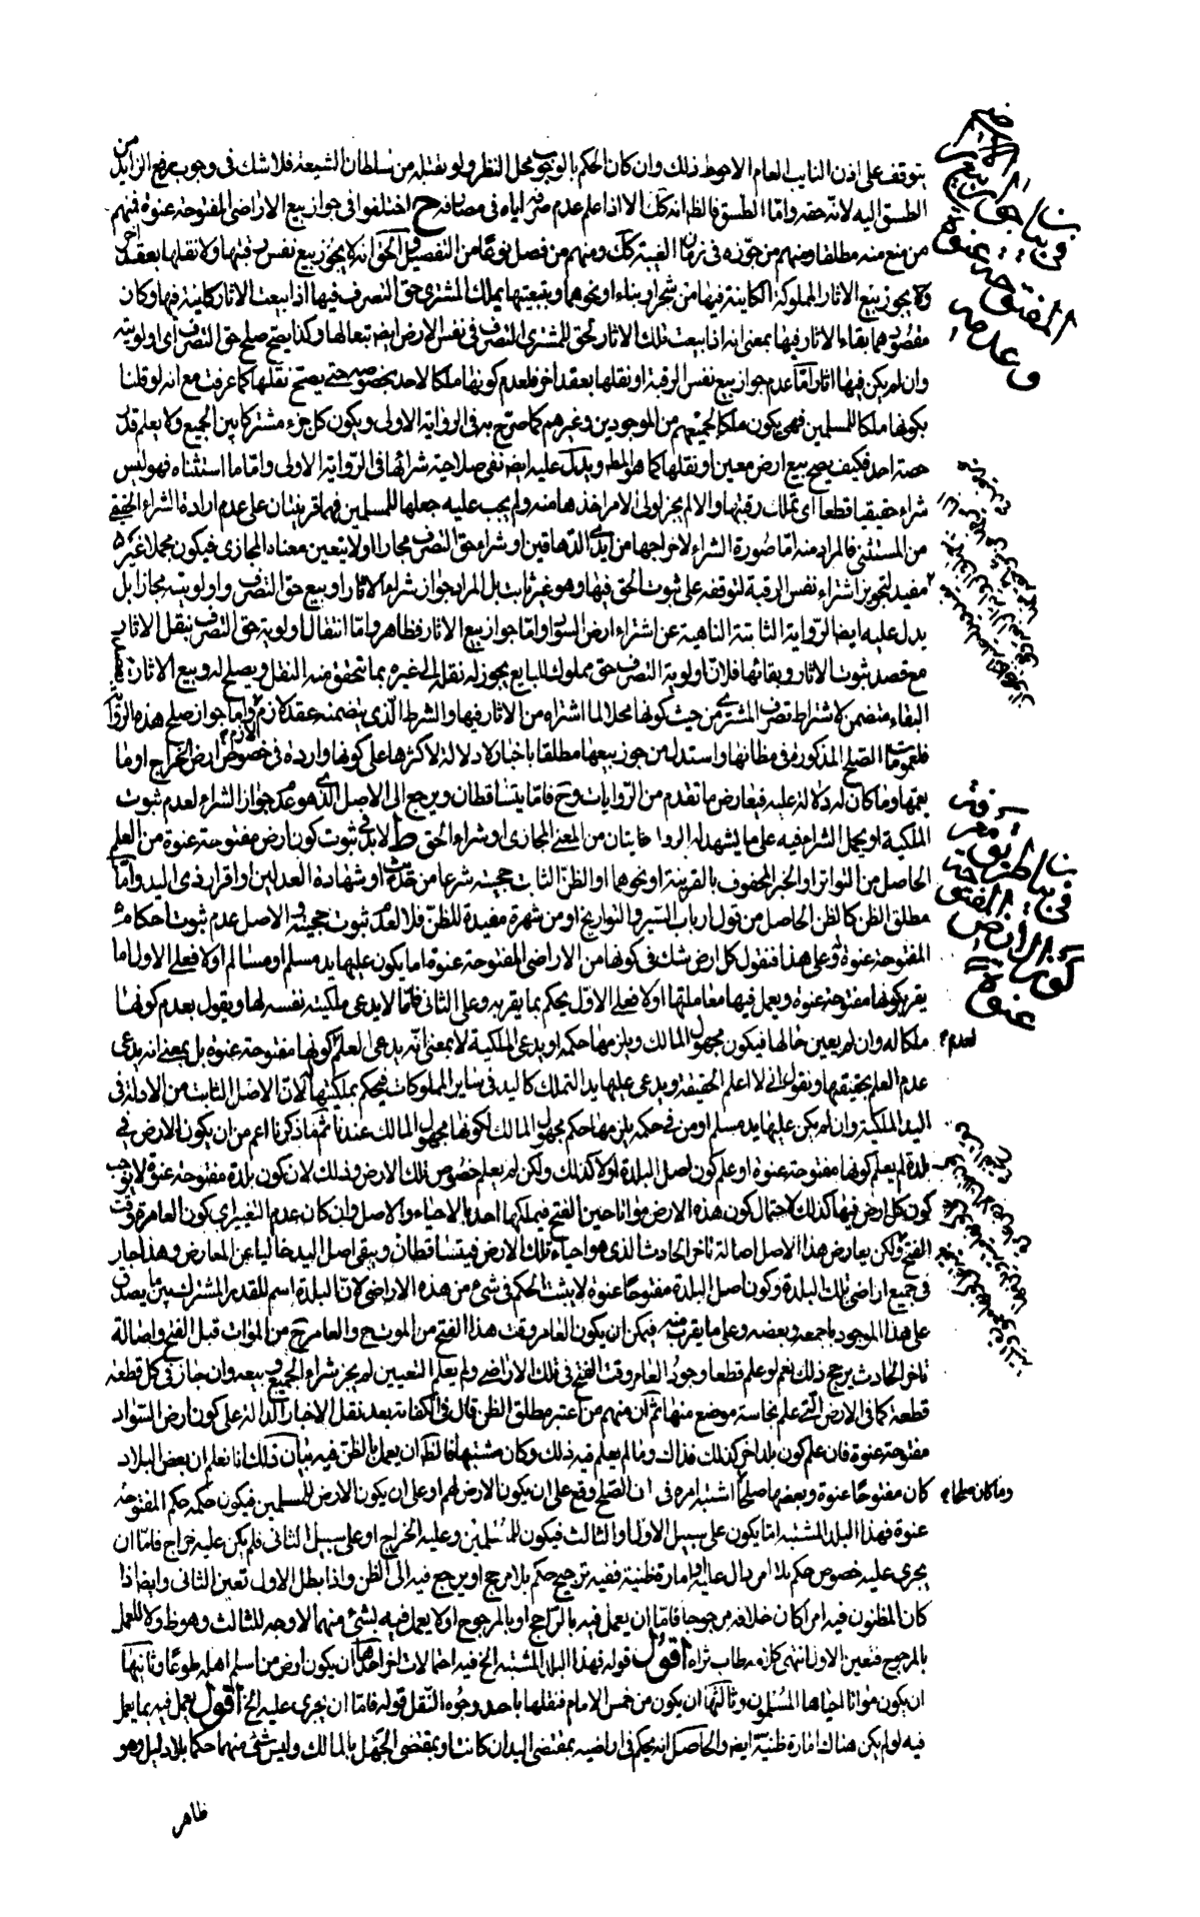 يتوقف على اذن النايب العام الاحوط ذلك وان كان الحكم بالوجوب محل النظر ولو يقتله من سلطان الشيعة فلا شك فى وجوب رفع الزايد من
الطسق اليه لانه حقه واما الطسق فالظ انه كك الا اذا علم عدم صرفه اياه فى مصارفه ح اختلفوا فى جواز بيع الاراضى المفتوحة عنوة فمنهم
من منع منه مطلقا ومنهم من جوزه فى زمان الغيبة كك ومنهم من فصل نوعا من التفصيل والحق انه لا يجوز بيع نفس رقبتها ولا نقلها بعقد اخر
ولا يجوز بيع الاثار المملوكة الكاينة فيها من شجر او بناء او نحوهما وبتبعيتها يملك المشترى حق التصرف فيها اذا بيعت الاثار كاينة فيها وكان
مقصودهما بقاء الاثار فيها بمعنى انه اذا بيعت تلك الاثار يحق للمشترى التصرف فى نفس الارض ايضا تبعا لها وكذا يصح صلح حق التصرف اى اولويته
وان لم يكن فيها اثار اما عدم جواز بيع نفس الرقبة او نقلها بعقد اخر فلعدم كونها ملكا لاحد بخصوصه حتى يصح نقلها كما عرفت مع انه لو قلنا
بكونها ملكا للمسلمين فهى يكون ملكا لجميعهم من الموجودين وغيرهم كما صرح به فى الرواية الاولى ويكون كل جزء مشتركا بين الجميع ولا يعلم قدر
حصة احد فكيف يصح بيع ارض معين او نقلها كما هو المط ويدل عليه ايضا نفى صلاحية شرائها فى الرواية الاولى واما ما استثناه فهو ليس
شراء حقيقيا قطعا اى تملك رقبتها والا لم يجز لولى الامر اخذها منه ولم يجب عليه جعلها للمسلمين فهما قرينتان على عدم ارادة الشراء الحقيقى
من المستثنى فالمراد منه اما صورة الشراء لاخراجها من ايدى الدهاقين او شراء حق التصرف مجازا او لا يتعين معناه المجازى فيكون مجملا غير
مفيد لتجويز اشتراء نفس الرقبة لتوقفه على ثبوت الحق فيها وهو غير ثابت بل المراد جواز شراء الاثار او بيع حق التصرف واولويته مجازا بل
يدل عليه ايضا الرواية الثانية الناهية عن اشتراء ارض السواد واما جواز بيع الاثار فظاهر واما انتقال اولوية حق التصرف بنقل الاثار
مع قصد ثبوت الاثار وبقائها فلان اولوية التصرف حق مملوك للبايع يجوز له نقله الى غيره بما يتحقق منه النقل ويصلح له وبيع الاثار بقصد
البقاء متضمن لاشتراط تصرف المشترى من حيث كونها محلا لما اشتراه من الاثار فيها والشرط الذى يتضمنه عقد لازم لازم واما جواز صلح هذه الرقاب
فلعمومات الصلح المذكورة فى مظانها واستدل من جوز بيعها مطلقا باخبار لا دلالة لاكثرها على كونها واردة فى خصوص ارض الخراج او ما
يعمها وما كان له دلالة عليه فيعارض ما تقدم من الروايات وح فاما يتساقطان ويرجع الى الاصل الذى هو عدم جواز الشراء لعدم ثبوت
الملكية او يحمل الشراء فيه على ما يشهد له الروايتان من المعنى المجازى او شراء الحق ط لابد فى ثبوت كون ارض مفتوحة عنوة من العلم
الحاصل من التواتر او الخبر المحفوف بالقرينة او نحوها او الظن الثابت حجيته شرعا من حديث او شهادة العدلين او اقرار ذى اليد واما
مطلق الظن كالظن الحاصل من قول ارباب السير والتواريخ او من شهرة مفيدة للظن فلا لعدم ثبوت حجيته والاصل عدم ثبوت احكام
المفتوحة عنوة وعلى هذا فنقول كل ارض شك فى كونها من الاراضى المفتوحة عنوة اما يكون عليها يد مسلم او مسالم او لا فعلى الاول اما
يقر بكونها مفتوحة عنوة ويعمل فيها معاملتها او لا فعلى الاول يحكم بما يقر به وعلى الثانى فاما لا يدعى ملكيته نفسه لها ويقول بعدم كونها
ملكا له وان لم يعين حالها فيكون مجهول المالك ويلزمها حكمه او يدعى الملكية لا بمعنى انه يدعى العلم كونها مفتوحة عنوة بل بمعنى انه يدعى
لعدم
عدم العلم بحقيقتها ويقول انى لا اعلم الحقيقة ويدعى عليها يد التملك كاليد فى ساير المملوكات فيحكم بملكيتها لان الاصل الثابت من الادلة فى
اليد الملكية وان لم يكن عليها يد مسلم او من فى حكمه يلزمها حكم مجهول المالك لكونها مجهول المالك عندنا ثم ما ذكرنا اعم من ان يكون الارض فى
بلدة لم يعلم كونها مفتوحة عنوة او علم كون اصل البلدة اولا كذلك ولكن لم يعلم خصوص تلك الارض وذلك لان كون بلدة مفتوحة عنوة لا يوجب
كون كل ارض فيها كذلك لاحتمال كون هذه الارض مواتا حين الفتح فيملكها احد بالاحياء والاصل وان كان عدم التغيير اى كون العامرة وقت
الفتح ولكن يعارض هذا الاصل اصالة تاخر الحادث الذى هو احياء تلك الارض فيتساقطان ويبقى اصل اليد خاليا عن المعارض وهذا جار
فى جميع اراضى تلك البلدة وكون اصل البلدة مفتوحا عنوة لا يثبت الحكم فى شىء من هذه الاراضى لان البلدة اسم للقدر المشترك بين ما يصدق
على هذا الموجود باجمعه وبعضه وعلى ما يقرب منه فيمكن ان يكون العامر وقت هذا الفتح من الموت ح والعامر ح من الموات قبل الفتح واصالة
تاخر الحادث يرجح ذلك نعم لو علم قطعا وجود العامر وقت الفتح فى تلك الاراضى ولم يعلم التعيين لم يجز شراء الجميع وبيعه وان جاز فى كل قطعة
قطعة كما فى الارض التى علم نجاسة موضع منها ثم ان منهم من اعتبر مطلق الظن قال فى الكفاية بعد نقل الاخبار الدالة على كون ارض السواد
مفتوحة عنوة فان علم كون بلد اخر كذلك فذاك وما لم يعلم فيه ذلك وكان مشتبها فالظ ان يعمل بالظن فيه بيان ذلك انا نعلم ان بعض البلاد
كان مفتوحا عنوة وبعضها صلحا اشتبه امره فى ان الصلح وقع على ان يكون الارض لهم او على ان يكون الارض للمسلمين فيكون حكمه حكم المفتوحة
وما كان صلحا
عنوة فهذا البلد المشتبه اما يكون على سبيل الاول او الثالث فيكون للمسلمين وعليه الخراج او على سبيل الثانى فلم يكن عليه خراج فاما ان
يجرى عليه خصوص حكم بلا امر دال عليه او امارة ظنية ففيه ترجيح حكم بلا مرجح او يرجع فيه الى الظن واذا بطل الاول تعين الثانى وايضا اذا
كان المظنون فيه امرا كان خلافه مرجوحا فاما ان يعمل فيه بالراجح او بالمرجوح او لا يعمل فيه بشئ منهما لا وجه للثالث وهو ظ ولا للعمل
بالمرجوح فتعين الاول انتهى كلامه طاب ثراه اقول قوله فهذا البلد المشتبه الخ فيه احتمالات اخر احدها ان يكون ارض من اسلم اهله طوعا وثانيها
ان يكون مواتا احياها المسلمون وثالثها ان يكون من خمس الامام فنقلها باحد وجوه النقل قوله فاما ان يجرى عليه الخ اقول يعمل فيه بما يعمل
فيه لو لم يكن هناك امارة ظنية ايضا والحاصل انه يحكم فى اراضيه بمقتضى اليد ان كانت او بمقتضى الجهل بالمالك وليس شئ منهما حكما بلا دليل وهو
ظاهر
فى بيان
المفتوحة عنوة
وعدمه
فى بيان طريق معرفة
كون الارض المفتوحة
عنوة